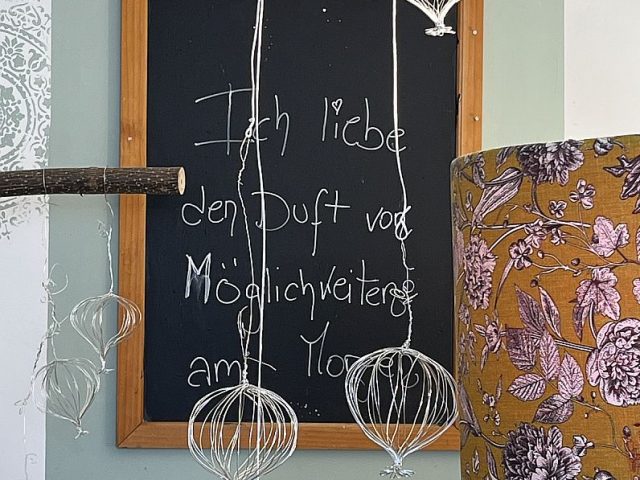 Ich liebe
den Duft von
Möglichkeiten
am Morgen